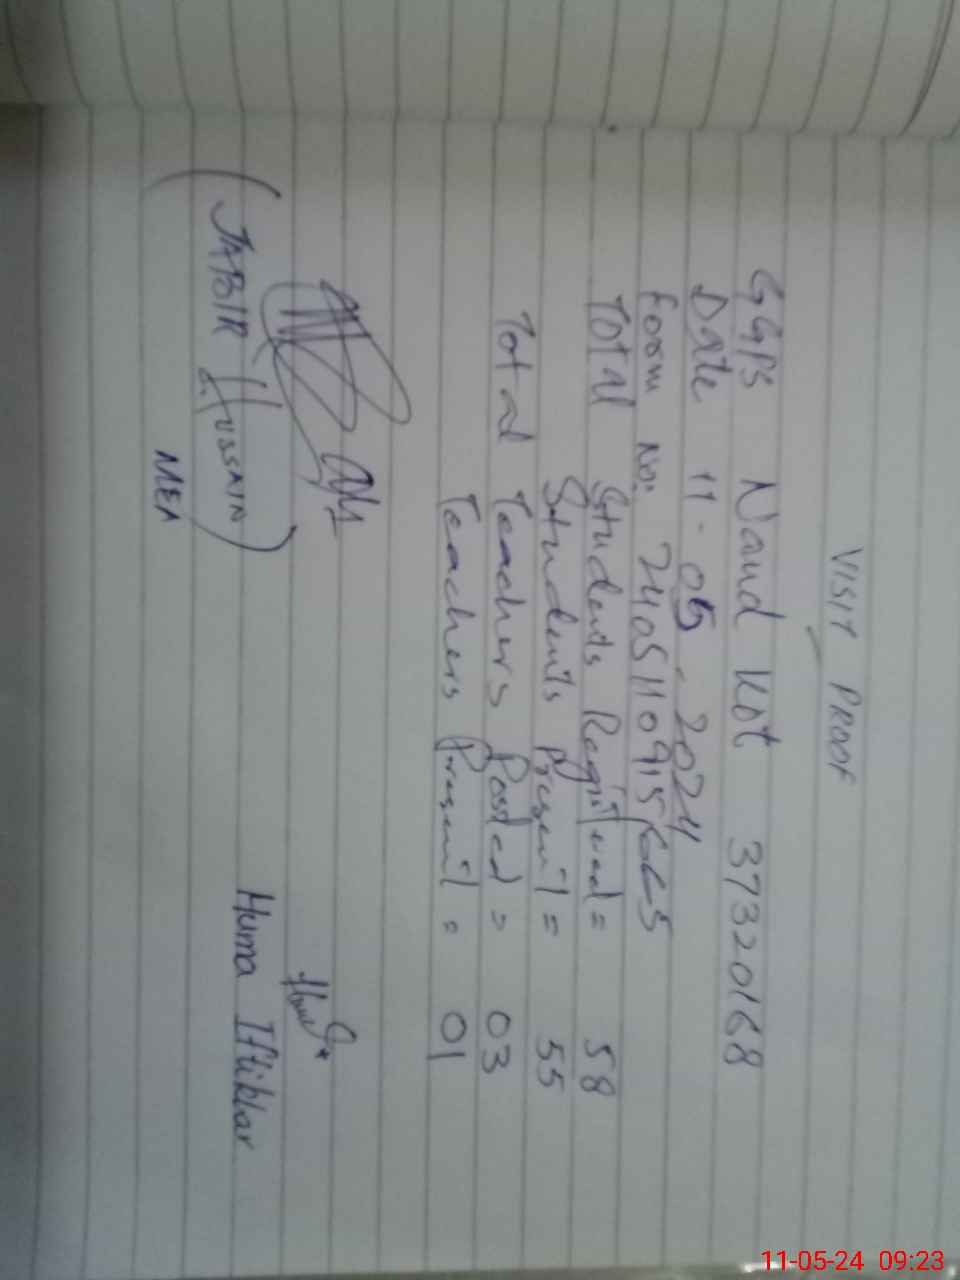 VISIT PROOF
GGPS Naud Kot 37320168
Date 11-05-2024
Form No. 240511091565
Total Students Registered = 58
Students Present = 55
Total Teachers Posted = 03
Teachers Present = 01
(JABIR HUSSAIN)
MEA
Huma Iftikhar
11-05-24 09:23